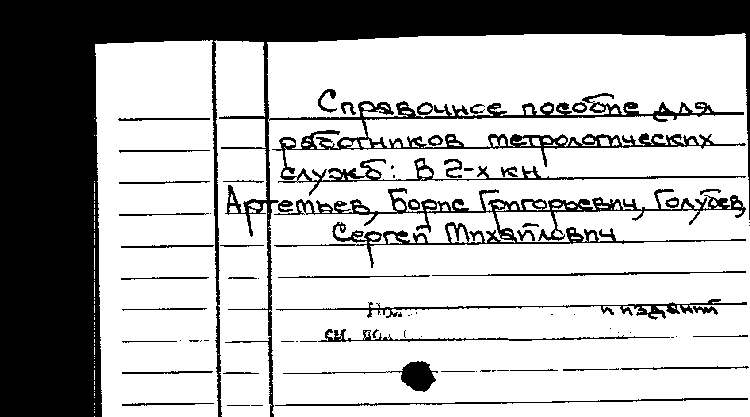 Справочное пособие для
работников метрологических
служб: В 2-х кн.
Артемьев, Борис Григорьевич, Голубев,
Сергей Михайлович
и изданий
см.